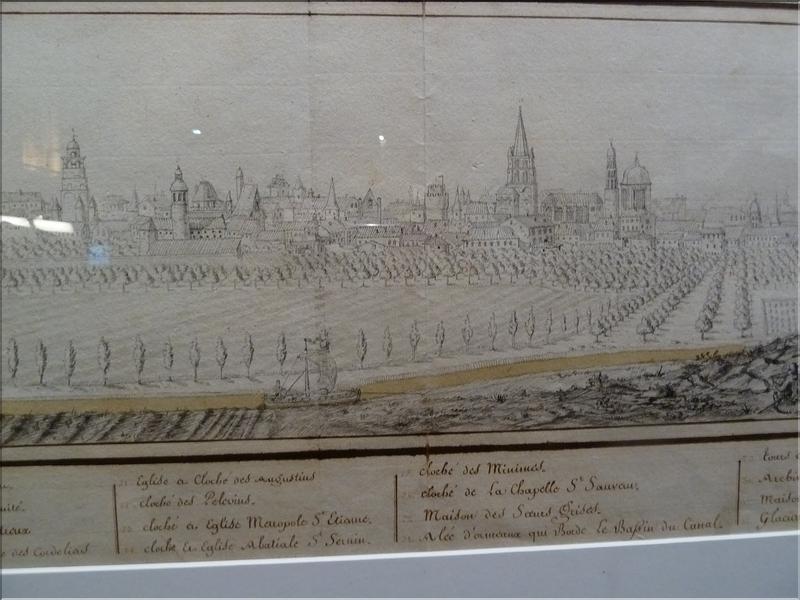 Eglise a Cloché des augustins
cloché des Pelerins.
cloché et Eglise Metropole St Etiame.
cloché et Eglise Abatiale St Sernin.
cloché des Minimes.
cloché de La Chapelle St Sauveur.
Maison des Sœurs Grises.
Alée d'ormeaux qui Borde Le Bassin du Canal.
des Cordeliers
tours
Maison
Glacia